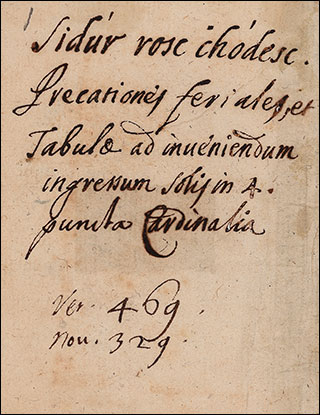 Sidúr rosc chódesc.
Precationes feriales, et
Tabulæ ad inueniendum
ingressum solis in 4.
puncta Cardinalia
Ver. 469.
Nou. 329.